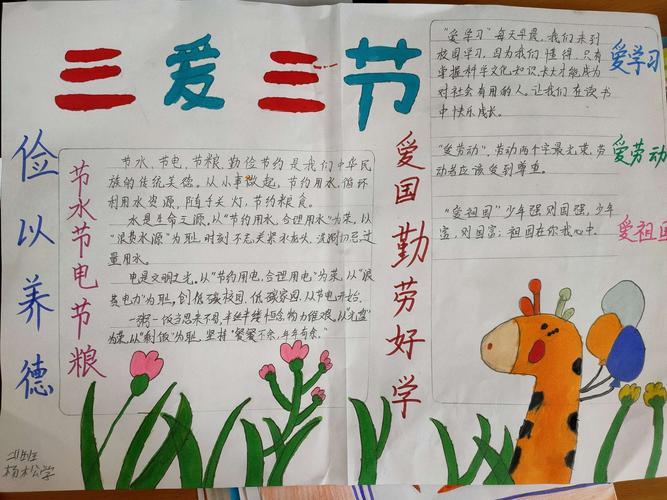 三爱三节
俭以养德
节水节电节粮
节水、节电、节粮、勤俭节约是我们中华民
族的传统美德。从小事做起,节约用水,循环
利用水资源,随手关灯,节约粮食。
水是生命之源。从“节约用水,合理用水”为荣,以
“浪费水源”为耻,时刻不忘关紧水龙头,
量用水。
电是文明之光。从“节约用电,合理用电”为荣,以“浪
费电力”为耻,创低碳校园,低碳家园,从节电开始。
一粥一饭当思来不易,半丝半缕恒念物力维艰。以“光盘”
为荣,以“剩饭”为耻,坚持“餐餐不余,年年有余。”
爱国勤劳好学
“爱学习”每天早晨,我们来到
校园学习,因为我们懂得,只有
掌握科学文化知识,长大才能成为
对社会有用的人。让我们在读书
中快乐成长。
爱学习
“爱劳动”,劳动两个字最光荣,劳
动者应该受到尊重。
爱劳动
“爱祖国”少年强则国强,少年
富,则国富;祖国在你我心中。
爱祖国
班
杨松学